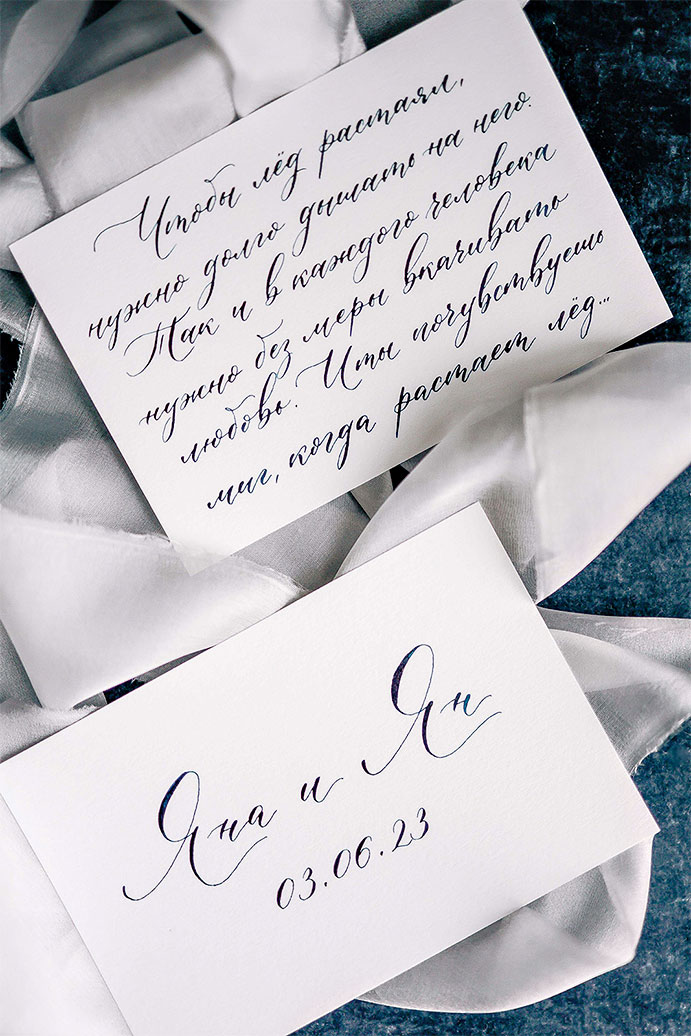 Чтобы лёд растаял,
нужно долго дышать на него.
Так и в каждого человека
нужно без меры вкачивать
любовь. И ты почувствуешь
миг, когда растает лёд...
Яна и Ян
03.06.23